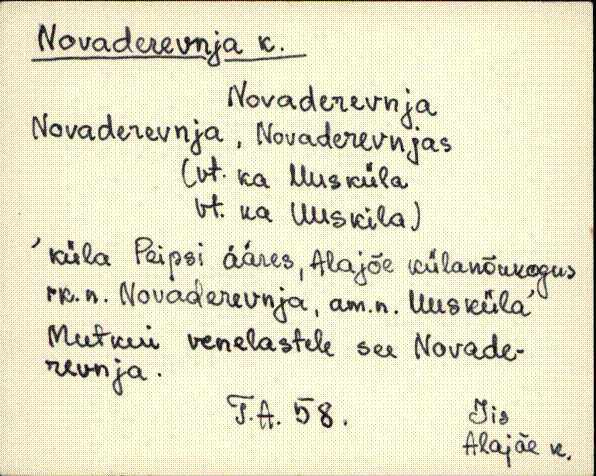 Novaderevnja k.
Novaderevnja
Novaderevnja, Novaderevnjas
(vt. ka Uusküla
vt. ka Uuskila)
'küla Peipsi ääres, Alajõe külanõukogus
rk.n. Novaderevnja, am.n. Uusküla'
Mutkui venelastele see Novade-
revnja.
T.A. 58.
Iis
Alajõe k.